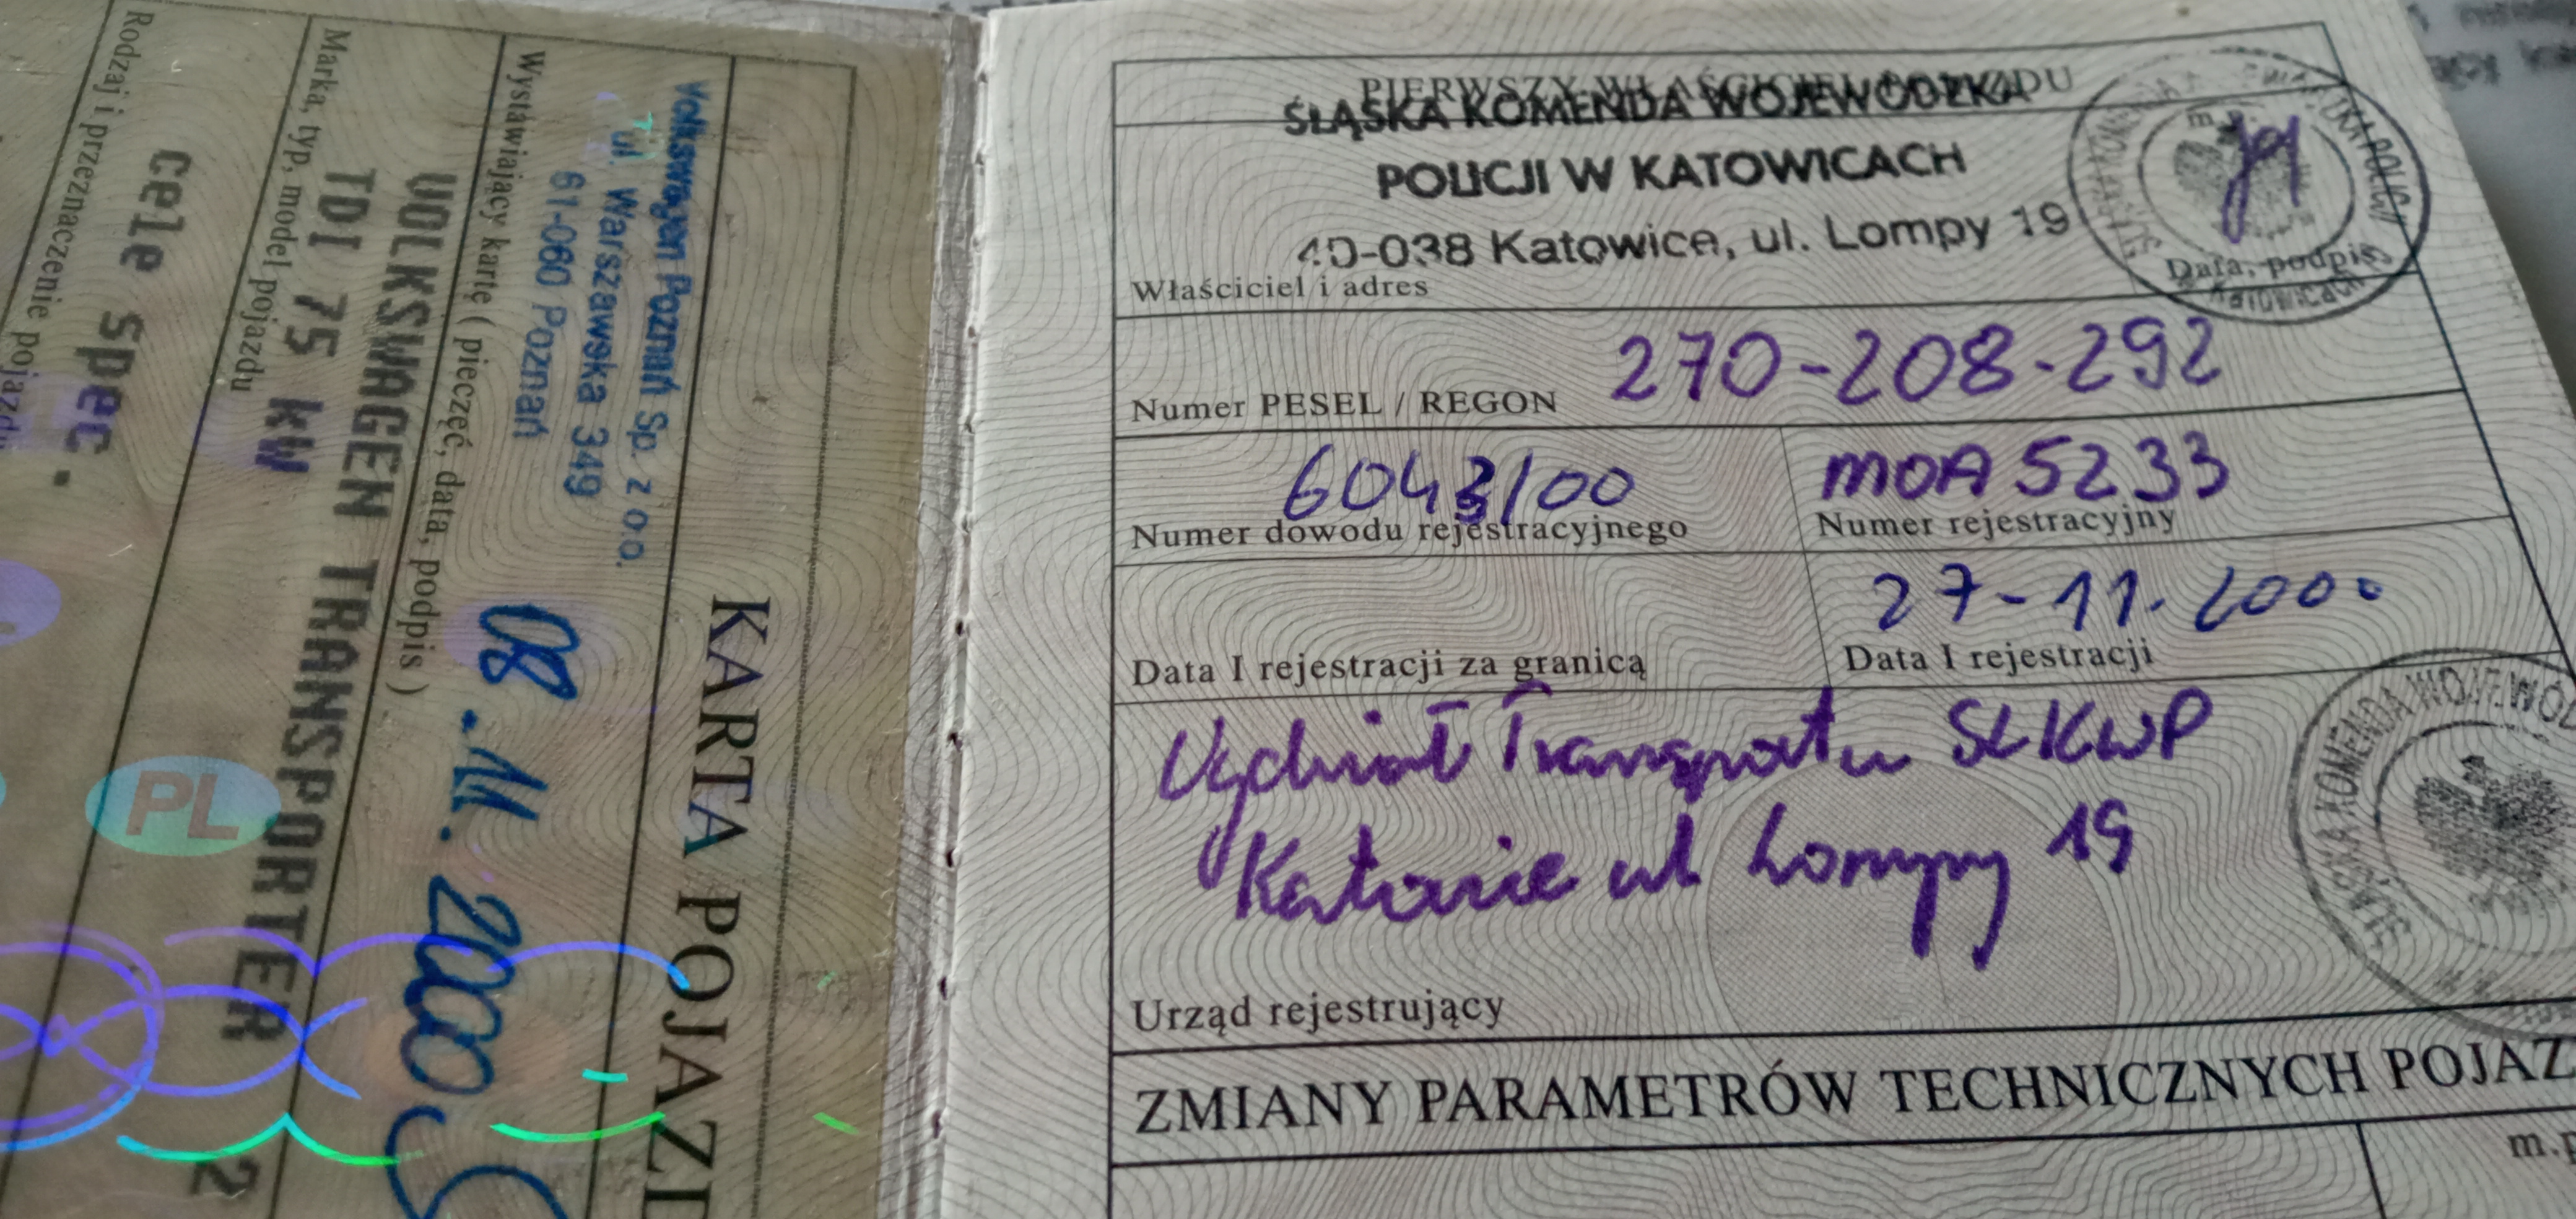 KARTA POJAZD
Volkswagen Poznań Sp. z o.o.
ul. Warszawska 349
61-060 Poznań
08.11.2000
Wystawiający kartę ( pieczęć, data, podpis )
VOLKSWAGEN TRANSPORTER
TDI 75 KW 2
Marka, typ, model pojazdu
cele spec.
Rodzaj i przeznaczenie pojazdu
PL
PIERWSZY WŁAŚCICIEL POJAZDU
ŚLĄSKA KOMENDA WOJEWÓDZKA
POLICJI W KATOWICACH
40-038 Katowice, ul. Lompy 19
Właściciel i adres
m.p.
Data, podpis
w Katowicach
270-208-292
Numer PESEL / REGON
6043/00
Numer dowodu rejestracyjnego
MOA 5233
Numer rejestracyjny
Data I rejestracji za granicą
27-11-2000
Data I rejestracji
Wydział Transportu SLKWP
Katowice ul Lompy 19
Urząd rejestrujący
ŚLĄSKA KOMENDA WOJEWÓD
ZMIANY PARAMETRÓW TECHNICZNYCH POJAZ
m.p